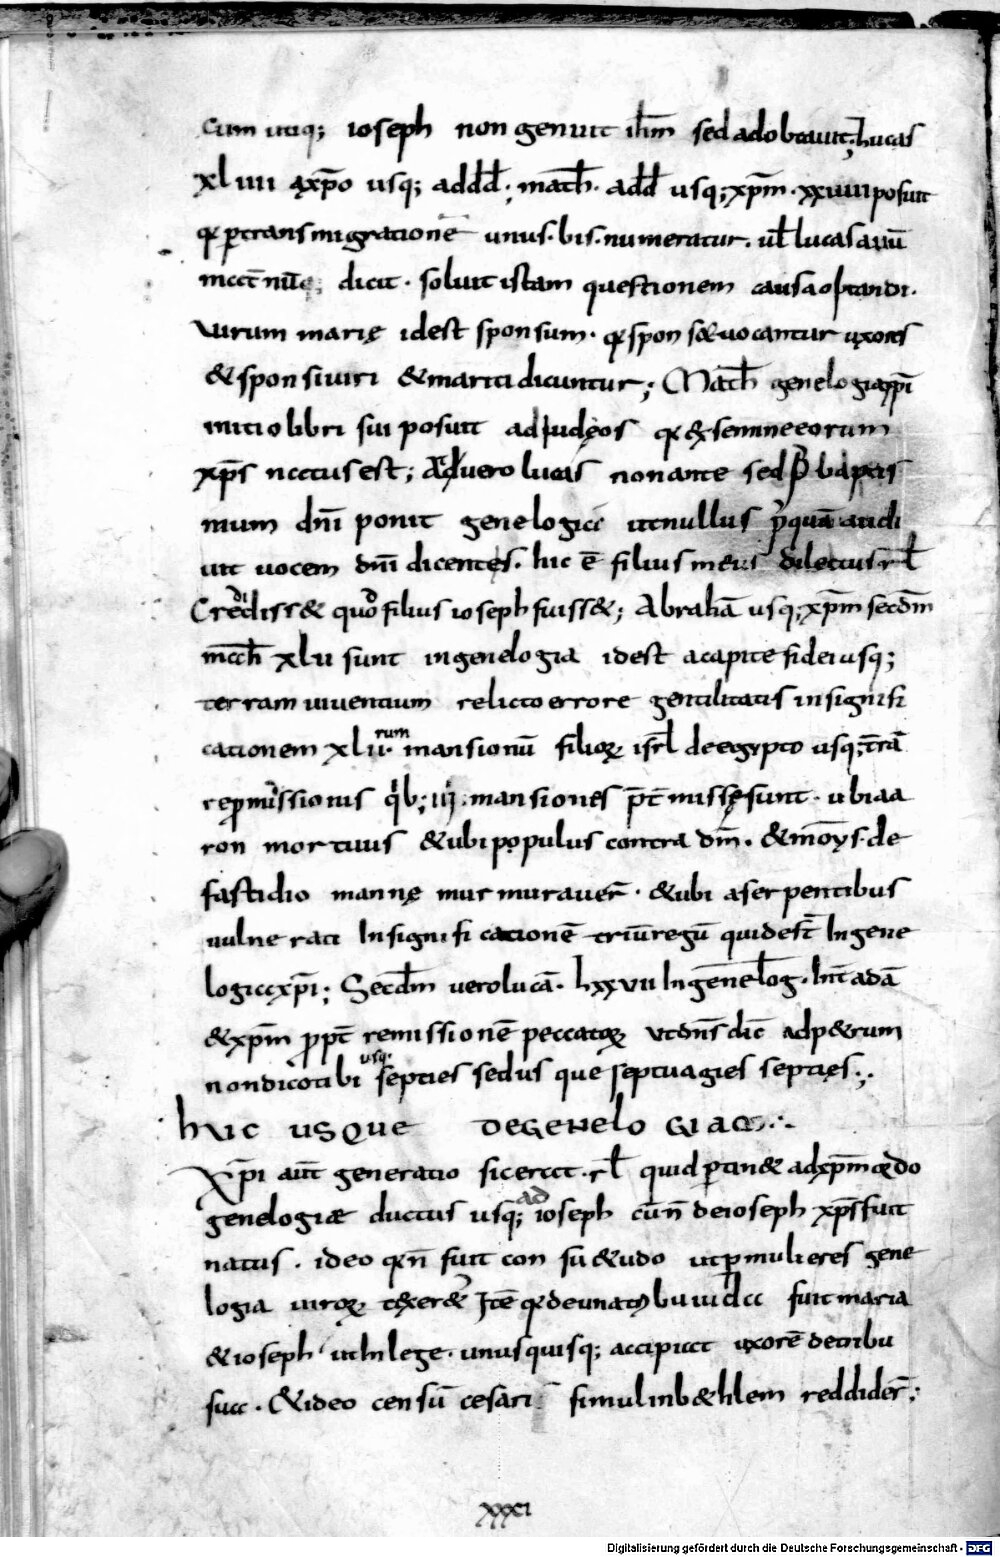 cum utiq; ioseph non genuit ihm̄ sed adobtauit; Lucas
xl iiii a xp̄o usq; ad dd̄. math̄. a dd̄ usq; xp̄m. xxuiiii posuit
qđ p transmigrationē unus. bis. numeratur. ul̄ lucas aiiū
dicit. soluit istam questionem causa optandi.
uirum marię idest sponsum. qđ spons& uocantur uxores
& sponsi uiri & mariti dicuntur; Math̄ genelogia xp̄i
initio libri sui posuit ad iudęos qđ ex semine eorum
xp̄s natus est; At uero lucas non ante sed p̄ baptis
mum dn̄i ponit genelogia ut nullus p̄ quā audi
uit uocem dn̄i dicentes. hic ē filius meus dilectus r̄l
Crediss& quo filius ioseph fuiss&; Abrahā usq; xp̄m secdm̄
math̄ xlii sunt in genelogia idest a capite fidei usq;
terram uiuentium relicto errore gentilitatis in signifi
cationem xlii.rum mansionū filioꝝ isrl̄ de egypto usq; trā
repromissionis qib; iii. mansiones p̄t missę sunt. ubi aa
ron mortuus & ubi populus contra dm̄. & moys̄. de
fastidio mannę murmurauer̄. & ubi a serpentibus
uulnerati In significationē triū regū qui dest̄ In gene
logia xp̄i; Secdm̄ uero lucā. lxxvii In genelog. Int̄ adā
& xp̄m ppt̄ remissionē peccatoꝝ ut dn̄s dic̄ ad p&rum
non dico tibi usq. septies sed usque septuagies septies;.
huc usque de genelogiae:.
Xp̄i aut̄ generatio sic erat. r̄l quid ptin& ad xp̄m qđ do
genelogiæ ductus usq; ad ioseph cū n̄ de ioseph xp̄s fuit
natus. ideo qđ n̄ fuit consu&udo ut p mulieres gene
logia uiroꝝ tex er& Itē qđ de una tribu iuda fuit maria
& ioseph ut In lege. unusquisq; accipiat uxorē de tribu
sua. & ideo censū cesari simul in b&hlem reddider̄;
xxxi
Digitalisierung gefördert durch die Deutsche Forschungsgemeinschaft - DFG